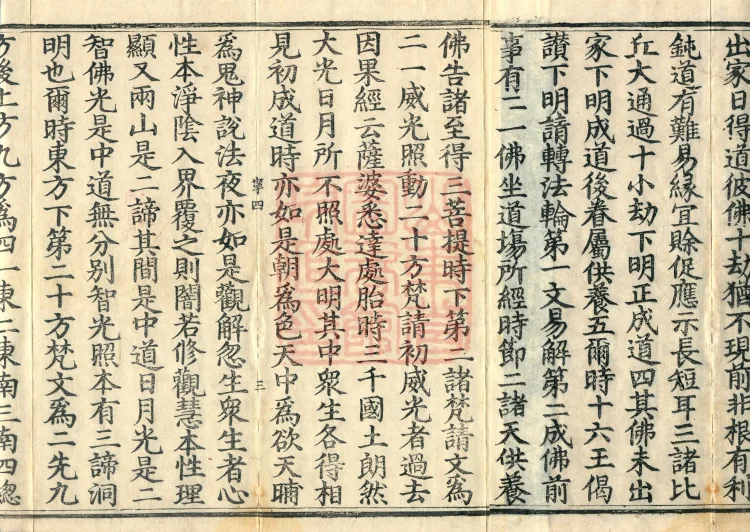 出家日得道彼佛十劫猶不現前非根有利
鈍道有難易緣宜賒促應示長短耳三諸比
丘大通過十小劫下明正成道四其佛未出
家下明成道後眷屬供養五爾時十六王偈
讃下明請轉法輪第一文易解第二成佛前
事有二一佛坐道塲所經時節二諸天供養
佛告諸至得三菩提時下第二諸梵請文爲
二一威光照動二十方梵請初威光者過去
因果經云薩婆悉達處胎時三千國土朗然
大光日月所不照處大明其中衆生各得相
見初成道時亦如是朝爲色天中爲欲天晡
寧四
三
爲鬼神說法夜亦如是觀解忽生衆生者心
性本淨陰入界覆之則闇若修觀慧本性理
顯又兩山是二諦其間是中道日月光是二
智佛光是中道無分別智光照本有三諦洞
明也爾時東方下第二十方梵文爲二先九
方後上方九方爲四一東二東南三南四總